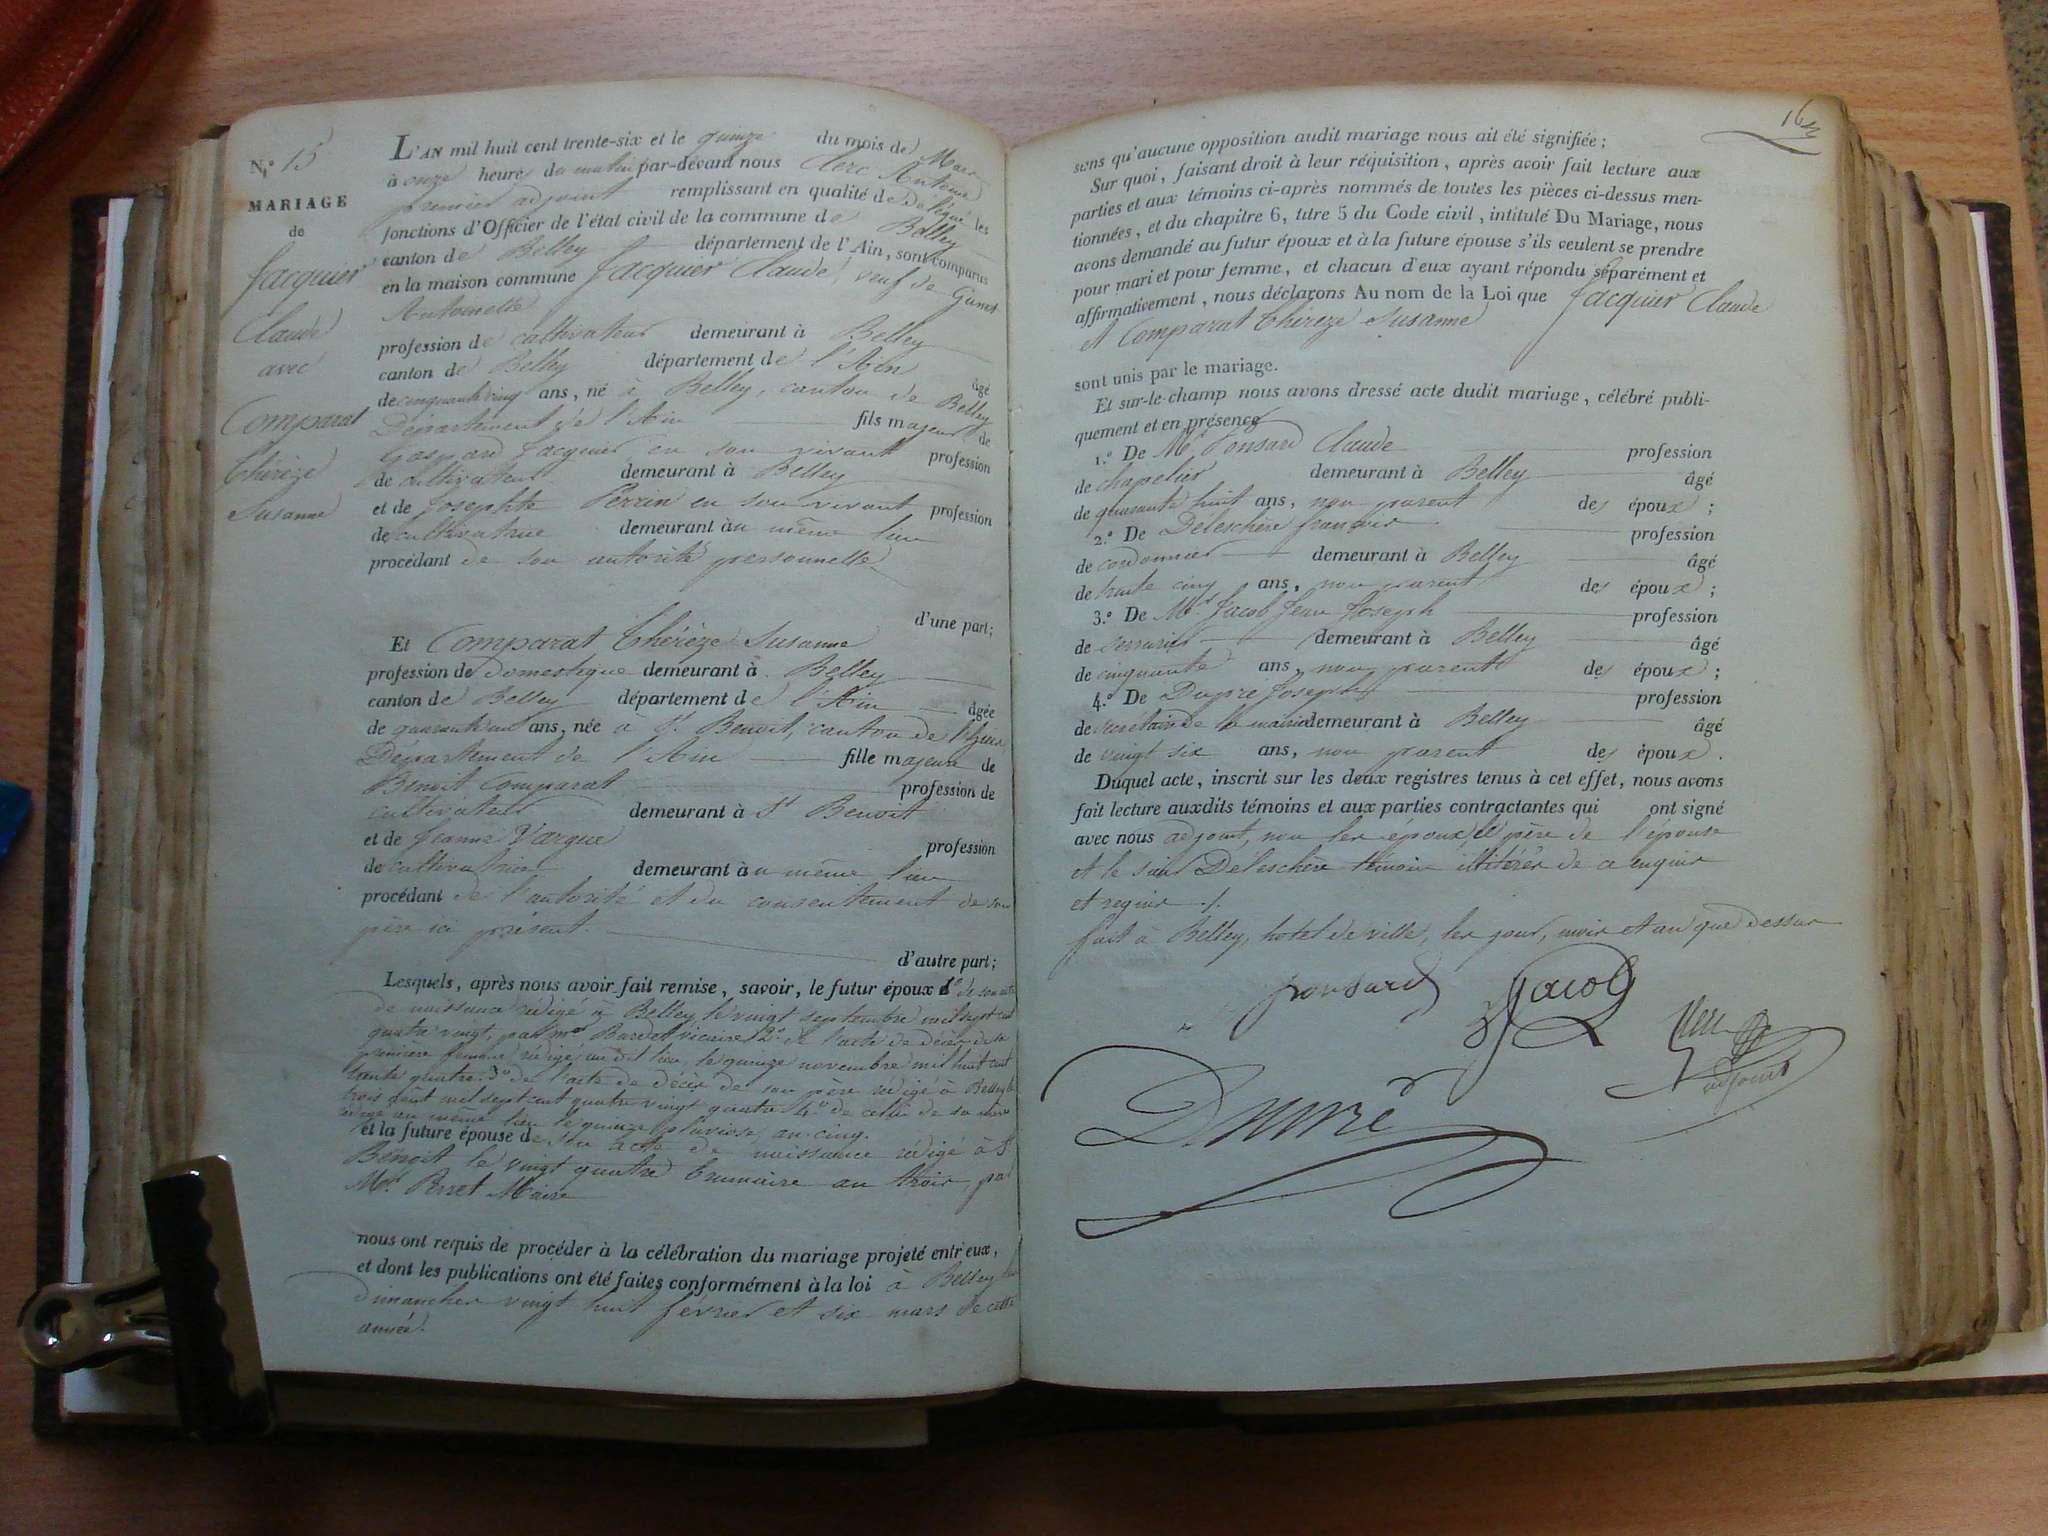 N.º 15
MARIAGE
de
Jacquier
Claude
avec
Comparat
Thérèze
Susanne
L'AN mil huit cent trente-six et le quinze du mois de Mars
à onze heures du matin par-devant nous Clerc Antoine
premier adjoint remplissant en qualité de délégué les
fonctions d'Officier de l'état civil de la commune de Belley
canton de Belley département de l'Ain, sont comparus
en la maison commune Jacquier Claude, veuf de
Antoinette
profession de cultivateur demeurant à Belley
canton de Belley département de l'Ain âgé
de cinquante cinq ans, né à Belley, canton de Belley
Département de l'Ain fils majeur de
Gaspard Jacquier en son vivant profession
de cultivateur demeurant à Belley
et de Josephte Perrin en son vivant profession
de cultivatrice demeurant au même lieu
procédant de son autorité personnelle
d'une part;
Et Comparat Thérèze Susanne
profession de domestique demeurant à Belley
canton de Belley département de l'Ain âgée
de quarante un ans, née à St. Benoit, canton de l'huis,
Département de l'Ain fille majeure de
Benoit Comparat profession de
cultivateur demeurant à St Benoit
et de Jeanne Vargue profession
de cultivatrice demeurant au même lieu
procédant de l'autorité et du consentement de son
père ici présent.
d'autre part;
Lesquels, après nous avoir fait remise, savoir, le futur époux 1º de son acte
de naissance rédigé à Belley le vingt septembre mil sept cent
quatre vingt, par Mr Bardet vicaire 2º de l'acte de décès de sa
première femme rédigé au dit lieu, le quinze novembre mil huit cent
trente quatre. 3º de l'acte de décès de son père rédigé à Belley le
trois août mil sept cent quatre vingt quatre 4º de celui de sa mère
rédigé au même lieu le quinze pluviose an cinq.
et la future épouse de son acte de naissance rédigé à St
Benoit le vingt quatre brumaire an trois, par
Mr. Perret Maire
nous ont requis de procéder à la célébration du mariage projeté entr'eux,
et dont les publications ont été faites conformément à la loi à Belley les
Dimanches vingt huit février et six mars de cette
année.
16
sans qu'aucune opposition audit mariage nous ait été signifiée;
Sur quoi, faisant droit à leur réquisition, après avoir fait lecture aux
parties et aux témoins ci-après nommés de toutes les pièces ci-dessus men-
tionnées, et du chapitre 6, titre 5 du Code civil, intitulé Du Mariage, nous
avons demandé au futur époux et à la future épouse s'ils veulent se prendre
pour mari et pour femme, et chacun d'eux ayant répondu séparément et
affirmativement, nous déclarons Au nom de la Loi que Jacquier Claude
et Comparat Thérèze Susanne
sont unis par le mariage.
Et sur-le-champ nous avons dressé acte dudit mariage, célébré publi-
quement et en présence
1.º De Mr Ponsard Claude profession
de chapelier demeurant à Belley âgé
de quarante huit ans, non parent des époux;
2.º De Deleschère françois profession
de cordonnier demeurant à Belley âgé
de trente cinq ans, non parent des époux;
3.º De Mr. Jacob Jean Joseph profession
de serrurier demeurant à Belley âgé
de cinquante ans, non parent des époux;
4.º De Dupré Joseph profession
de secrétaire de la mairie demeurant à Belley âgé
de vingt six ans, non parent des époux.
Duquel acte, inscrit sur les deux registres tenus à cet effet, nous avons
fait lecture auxdits témoins et aux parties contractantes qui ont signé
avec nous adjoint, non les époux, le père de l'épouse
et le sieur Deleschère témoin illitérés de ce enquis
et requis ./.
fait à Belley, hotel de ville, les jour, mois et an que dessus
ponsard Jacob Clerc
adjoint
Dupré